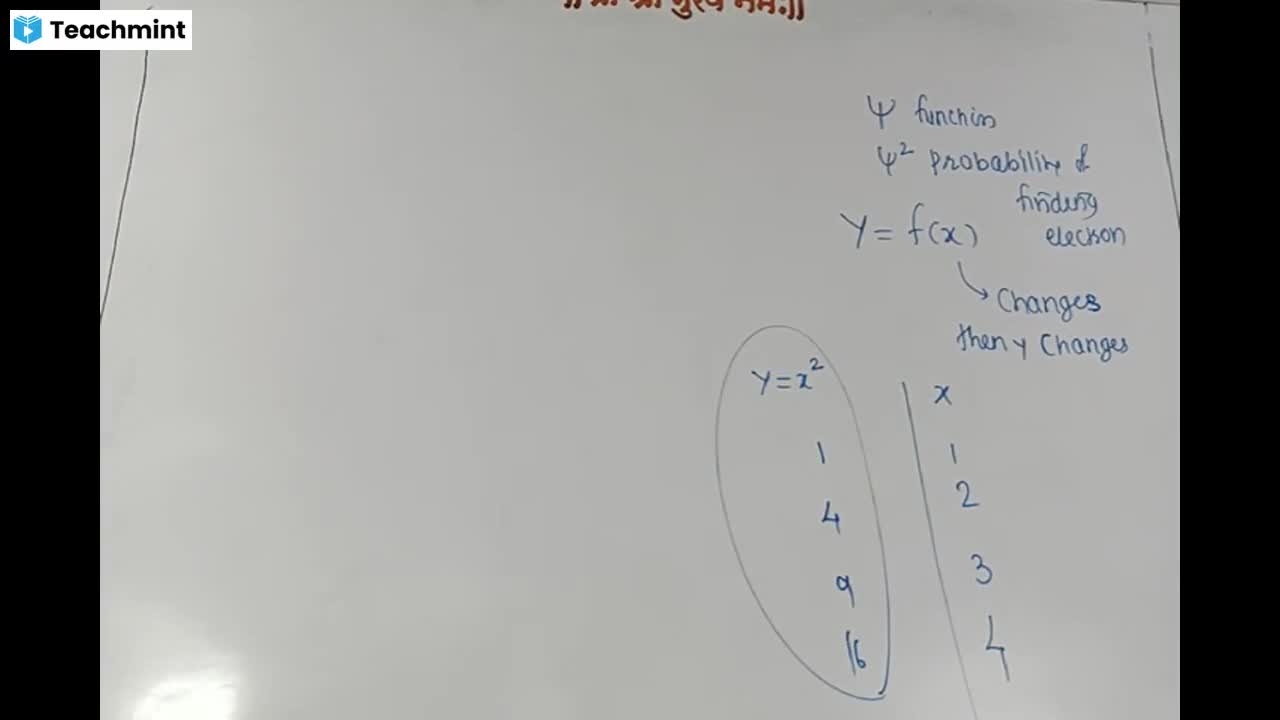 Teachmint
ψ function
ψ² probability of
finding
electron
Y = f(x)
Changes
then y Changes
Y = x²
x
1
1
4
2
9
3
16
4